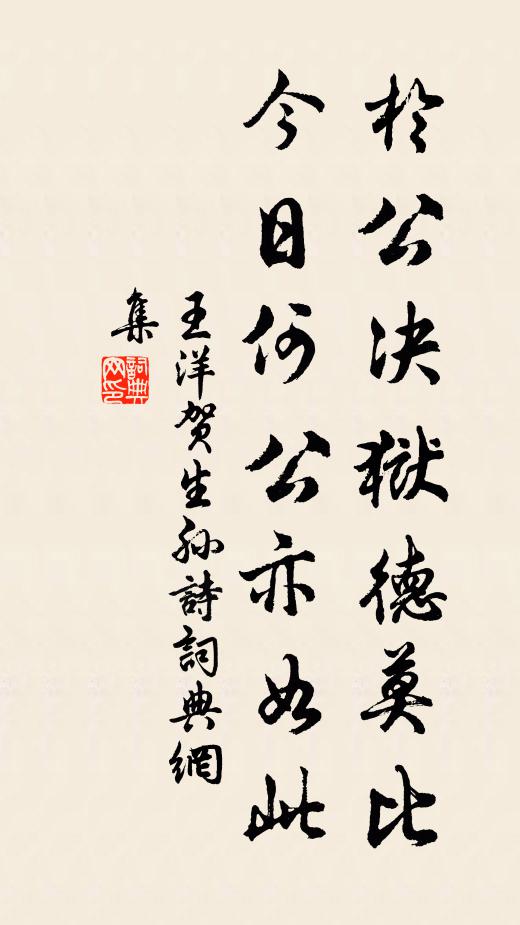 於公決獄德莫比
今日何公亦如此
王洋賀生孙詩詞典網
集
詞典网印